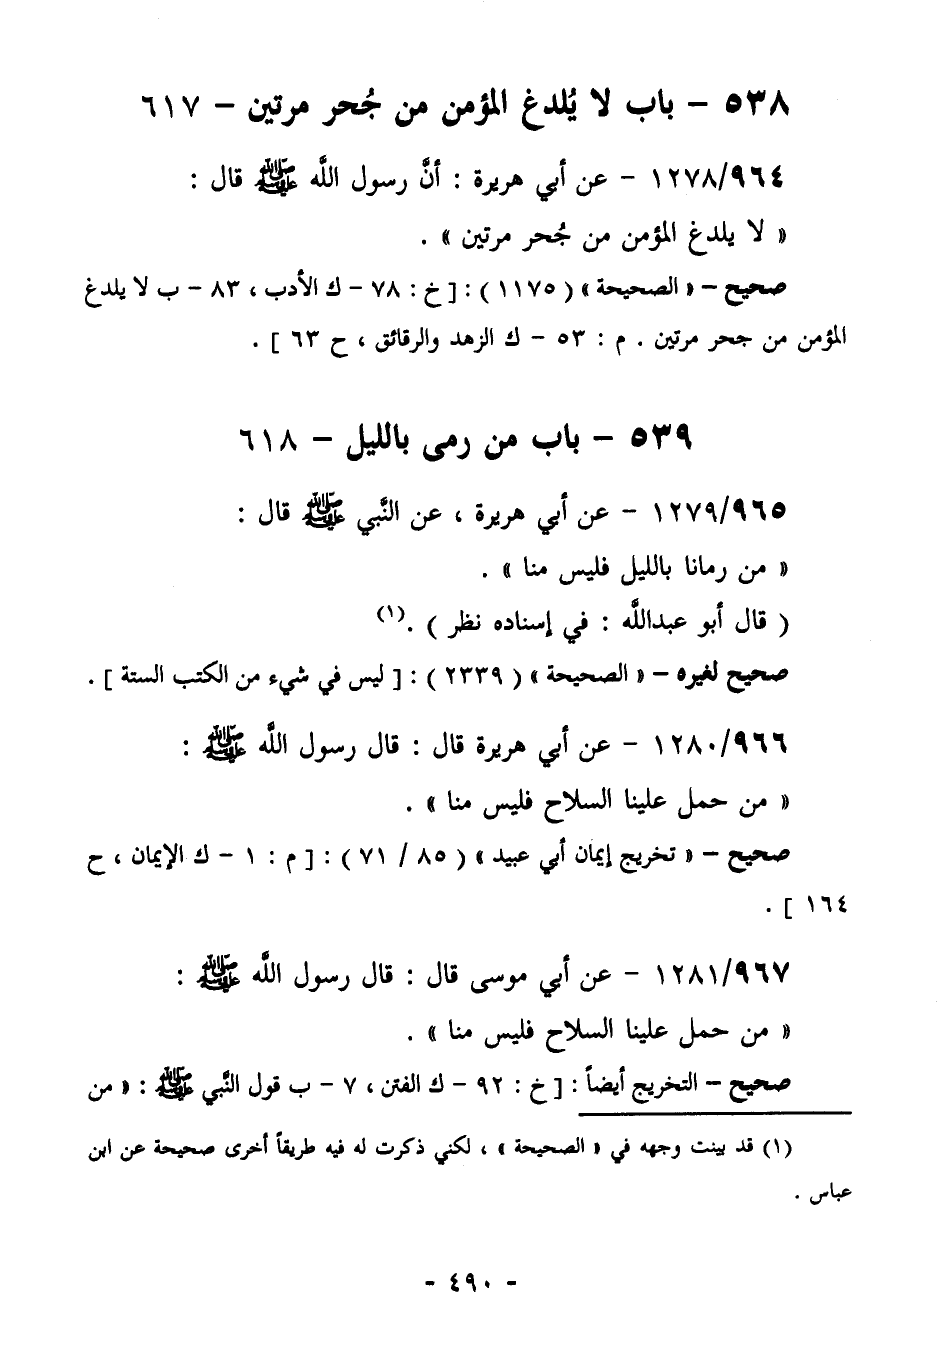 ٥٣٨ - باب لا يُلدغ المؤمن من جُحر مرتين - ٦١٧
١٢٧٨/٩٦٤ - عن أبي هريرة : أنَّ رسول اللَّه ﷺ قال :
« لا يلدغ المؤمن من جُحر مرتين » .
صحيح - « الصحيحة » ( ١١٧٥ ) : [ خ : ٧٨ - ك الأدب ، ٨٣ - ب لا يلدغ
المؤمن من جحر مرتين . م : ٥٣ - ك الزهد والرقائق ، ح ٦٣ ] .
٥٣٩ - باب من رمى بالليل - ٦١٨
١٢٧٩/٩٦٥ - عن أبي هريرة ، عن النَّبي ﷺ قال :
« من رمانا بالليل فليس منا » .
( قال أبو عبداللَّه : في إسناده نظر ) .(١)
صحيح لغيره - « الصحيحة » ( ٢٣٣٩ ) : [ ليس في شيء من الكتب الستة ] .
١٢٨٠/٩٦٦ - عن أبي هريرة قال : قال رسول اللَّه ﷺ :
« من حمل علينا السلاح فليس منا » .
صحيح - « تخريج إيمان أبي عبيد » ( ٨٥ / ٧١ ) : [ م : ١ - ك الإيمان ، ح
١٦٤ ] .
١٢٨١/٩٦٧ - عن أبي موسى قال : قال رسول اللَّه ﷺ :
« من حمل علينا السلاح فليس منا » .
صحيح - التخريج أيضاً : [ خ : ٩٢ - ك الفتن ، ٧ - ب قول النَّبي ﷺ : « من
(١) قد بينت وجهه في « الصحيحة » ، لكني ذكرت له فيه طريقاً أخرى صحيحة عن ابن
عباس .
- ٤٩٠ -